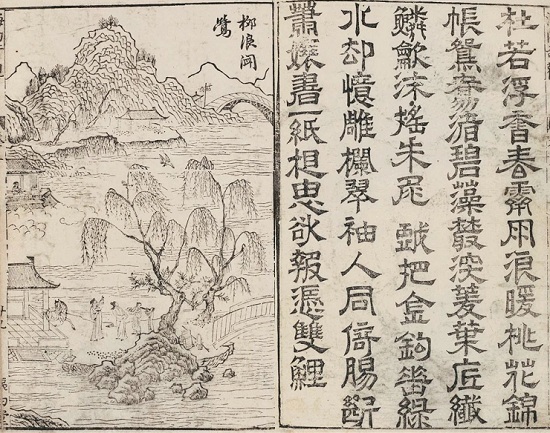 杜若浮香春霽雨浪暖桃花錦
帳渚碧藻深菱葉底纖
鱗歕沫搖朱尾 戲把金鉤綠
水却憶雕欄翠袖人同倚腸斷
蕭孃書一紙相思欲報憑雙鯉
柳浪聞
鶯